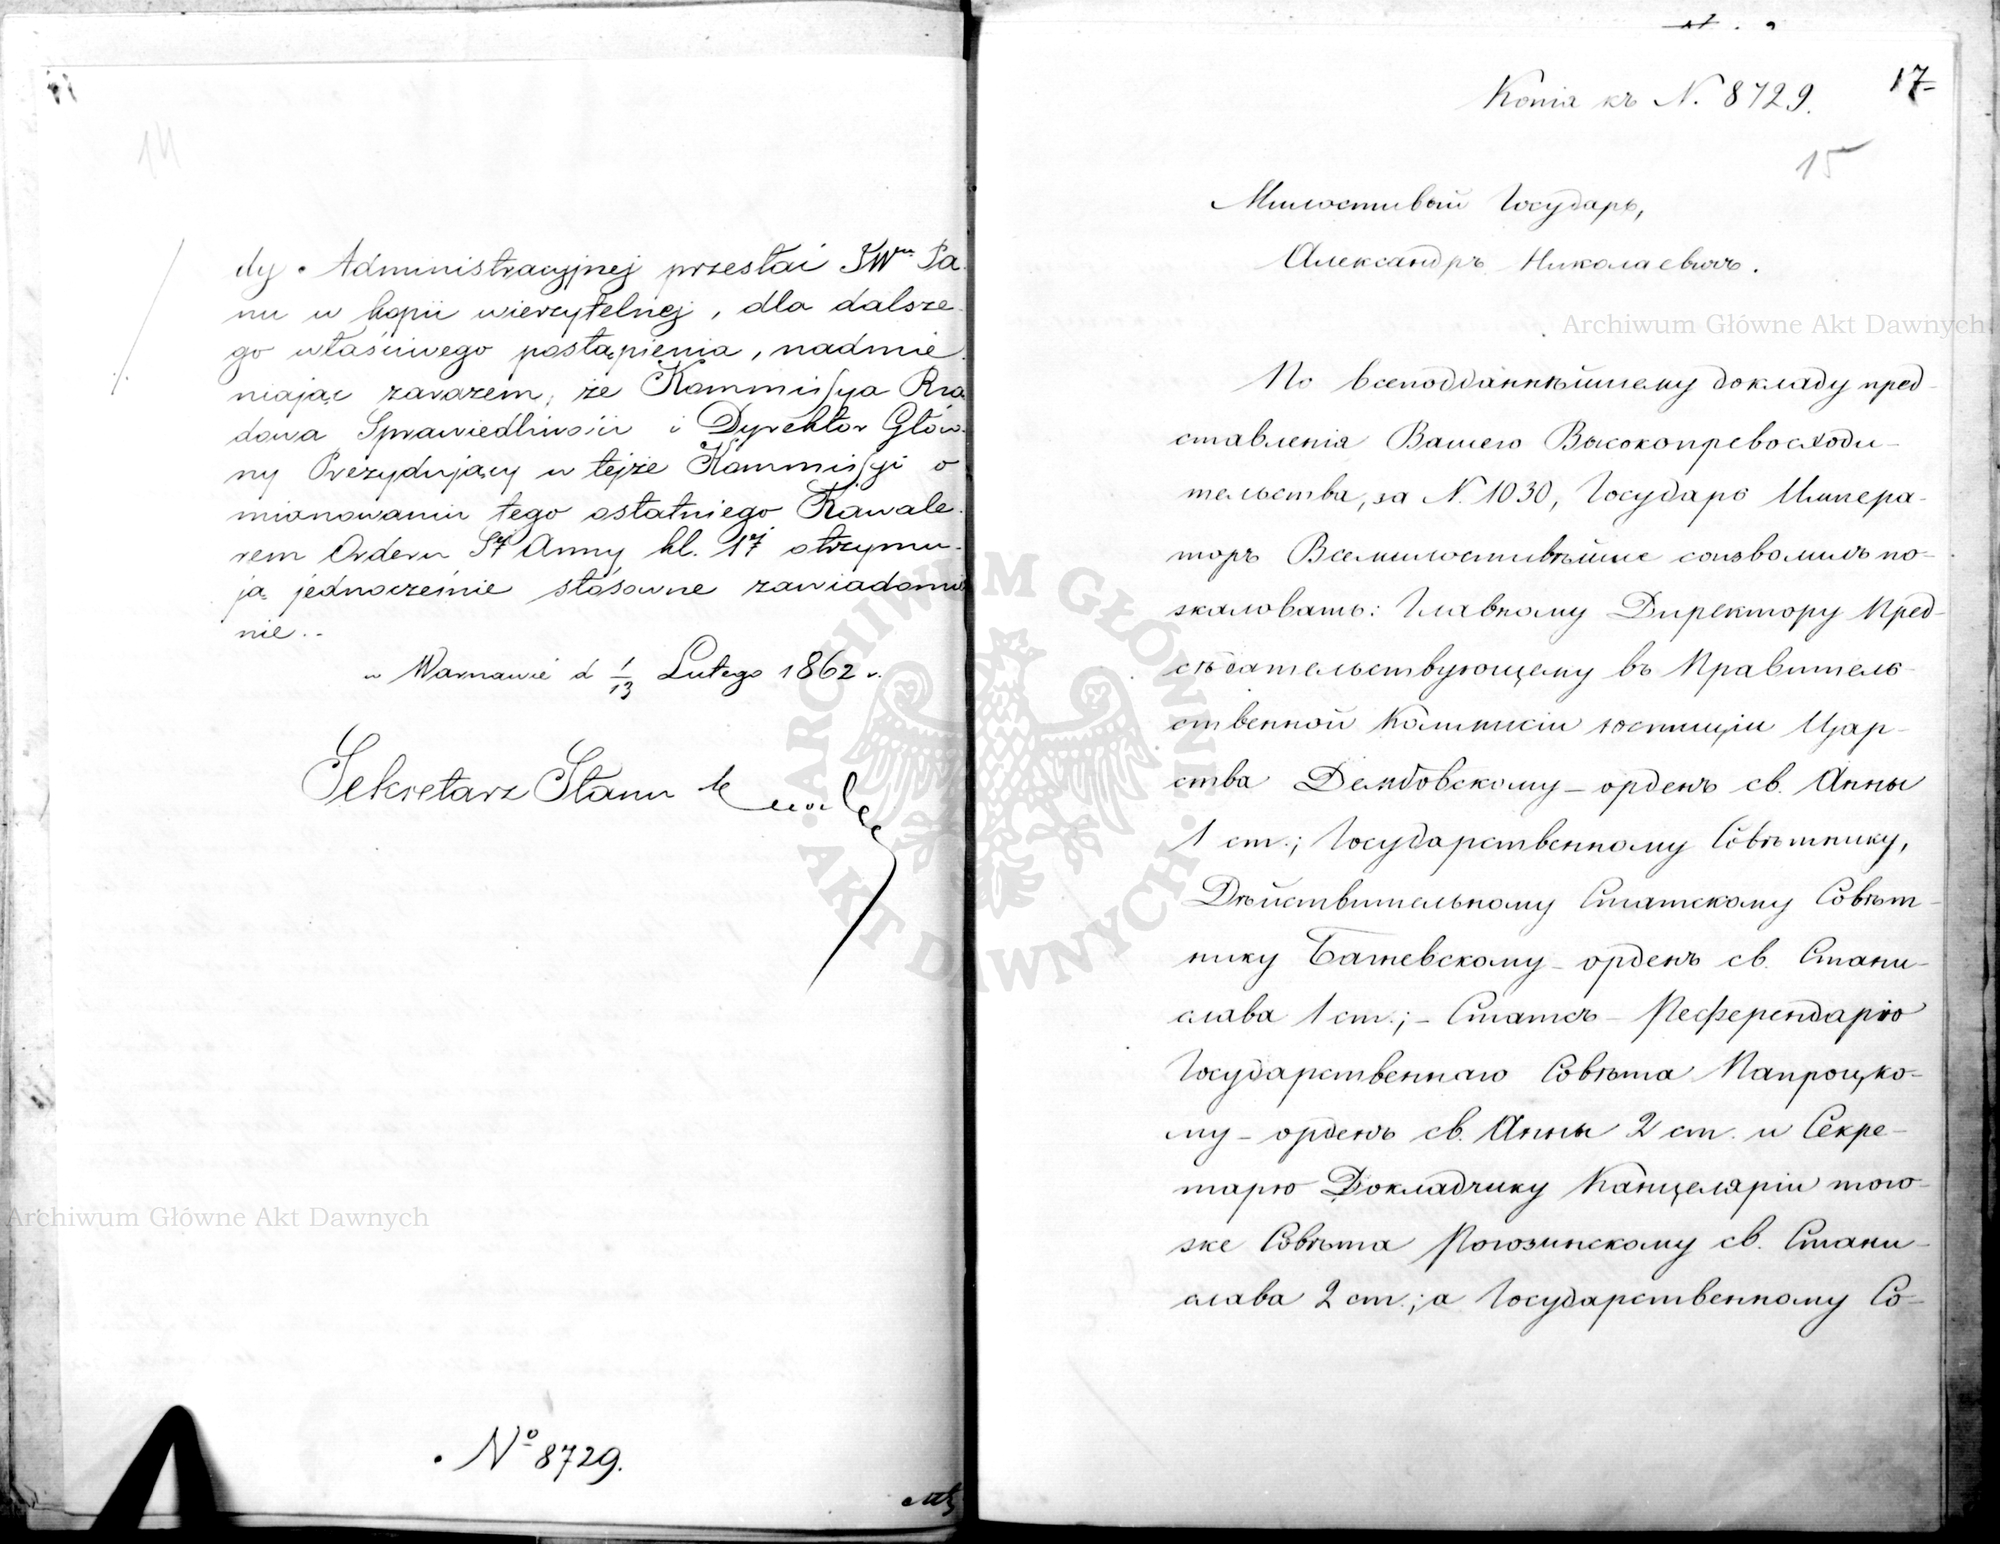 14
dy Administracyjnej przesłać JWu Pa-
nu w kopii wierzytelnej, dla dalsze-
go właściwego postąpienia, nadmie-
niając zarazem, że Kommissya Rzą-
dowa Sprawiedliwości i Dyrektor Głów-
ny Prezydujący w tejże Kommissyi o
mianowaniu tego ostatniego Kawale-
rem Orderu Sej Anny kl. 1ej otrzymu-
ją jednocześnie stosowne zawiadomie-
nie.
w Warszawie d 1/13 Lutego 1862 r.
Sekretarz Stanu
Nº 8729.
17
Копія къ N. 8729.
15
Милостивый Государь,
Александръ Николаевичъ.
По всеподданнѣйшему докладу пред-
ставленія Вашего Высокопревосходи-
тельства, за N. 1030, Государь Импера-
торъ Всемилостивѣйше соизволилъ по-
жаловать: Главному Директору Пред-
сѣдательствующему въ Правитель-
ственной Коммисіи юстиціи Цар-
ства Дембовскому – орденъ св. Анны
1 ст.; Государственному Совѣтнику,
Дѣйствительному Статскому Совѣт-
нику – орденъ св. Стани-
слава 1 ст.; – Статсъ – Референдарію
Государственнаго Совѣта Папроцко-
му – орденъ св. Анны 2 ст. и Секре-
тарю Докладчику Канцеляріи того-
же Совѣта св. Стани-
слава 2 ст.; а Государственному Со-
Archiwum Główne Akt Dawnych
Archiwum Główne Akt Dawnych
ARCHIWUM GŁÓWNE AKT DAWNYCH